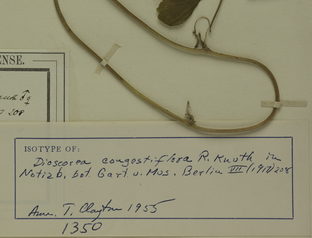 ENSE.
208
ISOTYPE OF:
Dioscorea congestiflora R. Knuth in
Notizb. bot Gart u. Mus. Berlin VII (1917) 208
Ann. T. Clayton 1955
1350